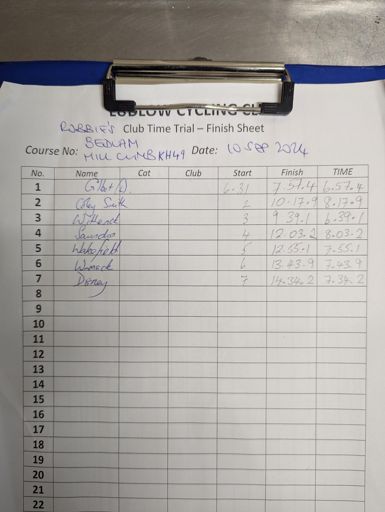 LUDLOW CYCLING CL
ROBBIE'S Club Time Trial – Finish Sheet
BEDLAM
Course No: HILL CLIMB KH49 Date: 10 SEP 2024
No. Name Cat Club Start Finish TIME
1 6.31 7.57.4 6.57.4
2 2 10.17.9 8.17.9
3 3 9 39.1 6.39.1
4 Saunders 4 12.03.2 8.03.2
5 Wakefield 5 12.55.1 7.55.1
6 Womack 6 13.43.9 7.43.9
7 Disney 7 14.34.2 7.34.2
8
9
10
11
12
13
14
15
16
17
18
19
20
21
22